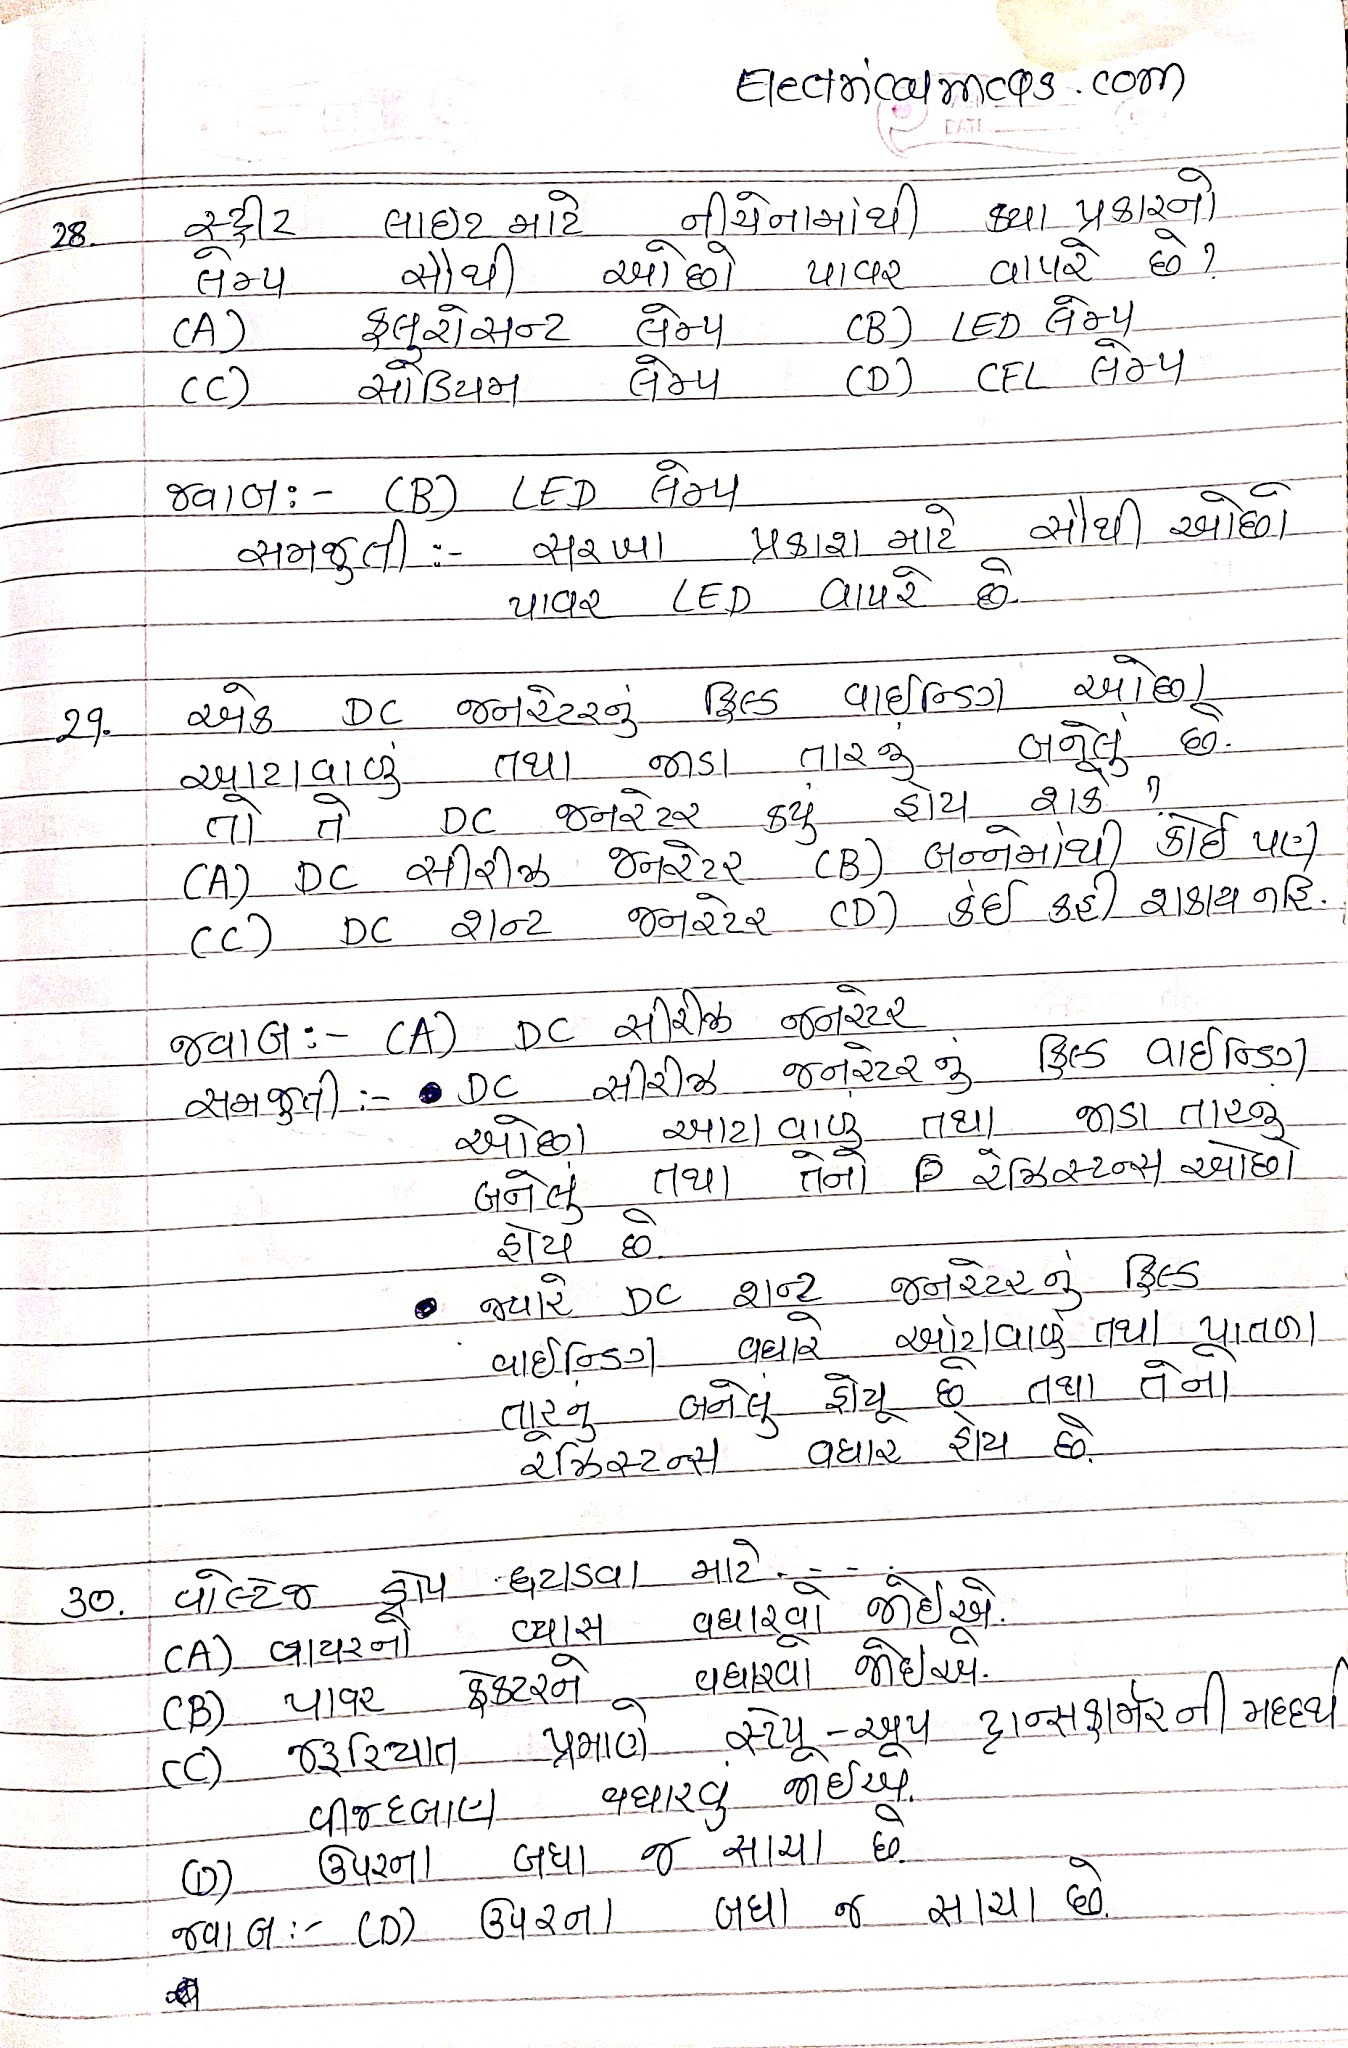 Electricalmcqs.com
DATE
28. સ્ટ્રીટ લાઇટ માટે નીચેનામાંથી કયા પ્રકારનો
લેમ્પ સૌથી ઓછો પાવર વાપરે છે?
(A) ફલુરોસન્ટ લેમ્પ (B) LED લેમ્પ
(C) સોડિયમ લેમ્પ (D) CFL લેમ્પ
જવાબ:- (B) LED લેમ્પ
સમજુતી:- સરખા પ્રકાશ માટે સૌથી ઓછો
પાવર LED વાપરે છે.
29. એક DC જનરેટરનું ફિલ્ડ વાઇન્ડિંગ ઓછા
આટાવાળું તથા જાડા તારનું બનેલું છે.
તો તે DC જનરેટર કયું હોય શકે?
(A) DC સીરીઝ જનરેટર (B) બન્નેમાંથી કોઈ પણ
(C) DC શન્ટ જનરેટર (D) કંઈ કહી શકાય નહિ.
જવાબ:- (A) DC સીરીઝ જનરેટર
સમજુતી:- • DC સીરીઝ જનરેટરનું ફિલ્ડ વાઇન્ડિંગ
ઓછા આટાવાળું તથા જાડા તારનું
બનેલું તથા તેનો રેઝિસ્ટન્સ ઓછો
હોય છે.
• જ્યારે DC શન્ટ જનરેટરનું ફિલ્ડ
વાઇન્ડિંગ વધારે આંટાવાળું તથા પાતળા
તારનું બનેલું હોય છે તથા તેનો
રેઝિસ્ટન્સ વધારે હોય છે.
30. વોલ્ટેજ ડ્રોપ ઘટાડવા માટે.---.
(A) વાયરનો વ્યાસ વધારવો જોઇએ.
(B) પાવર ફેક્ટરને વધારવો જોઇએ.
(C) જરૂરિયાત પ્રમાણે સ્ટેપ-અપ ટ્રાન્સફાર્મરની મદદથી
વીજદબાણ વધારવું જોઇએ.
(D) ઉપરના બધા જ સાચા છે.
જવાબ:- (D) ઉપરના બધા જ સાચા છે.